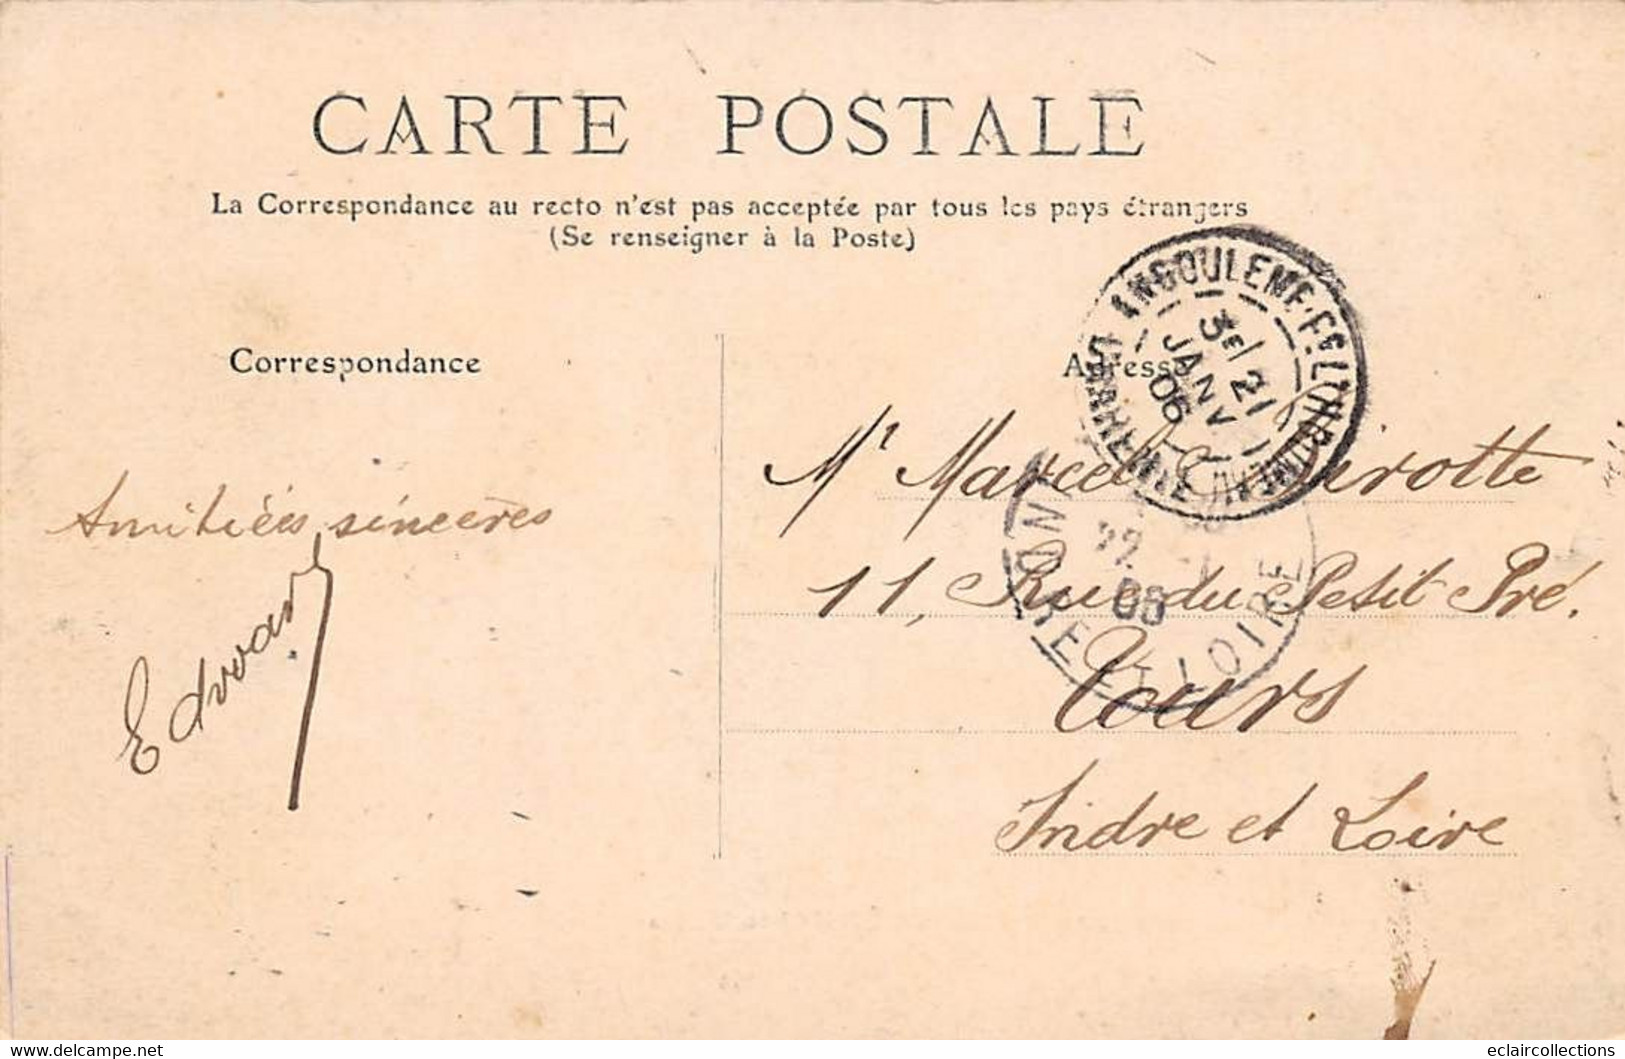 CARTE POSTALE
La Correspondance au recto n'est pas acceptée par tous les pays étrangers
(Se renseigner à la Poste)
Correspondance
Adresse
ANGOULEME
CHARENTE
3E 21
JANV
06
Mr Marcel
11, Rue du Petit Pré.
Tours
Indre et Loire
22
06
LOIRE
Amitiées sincères
Edvoard
delcampe.net
eclaircollections